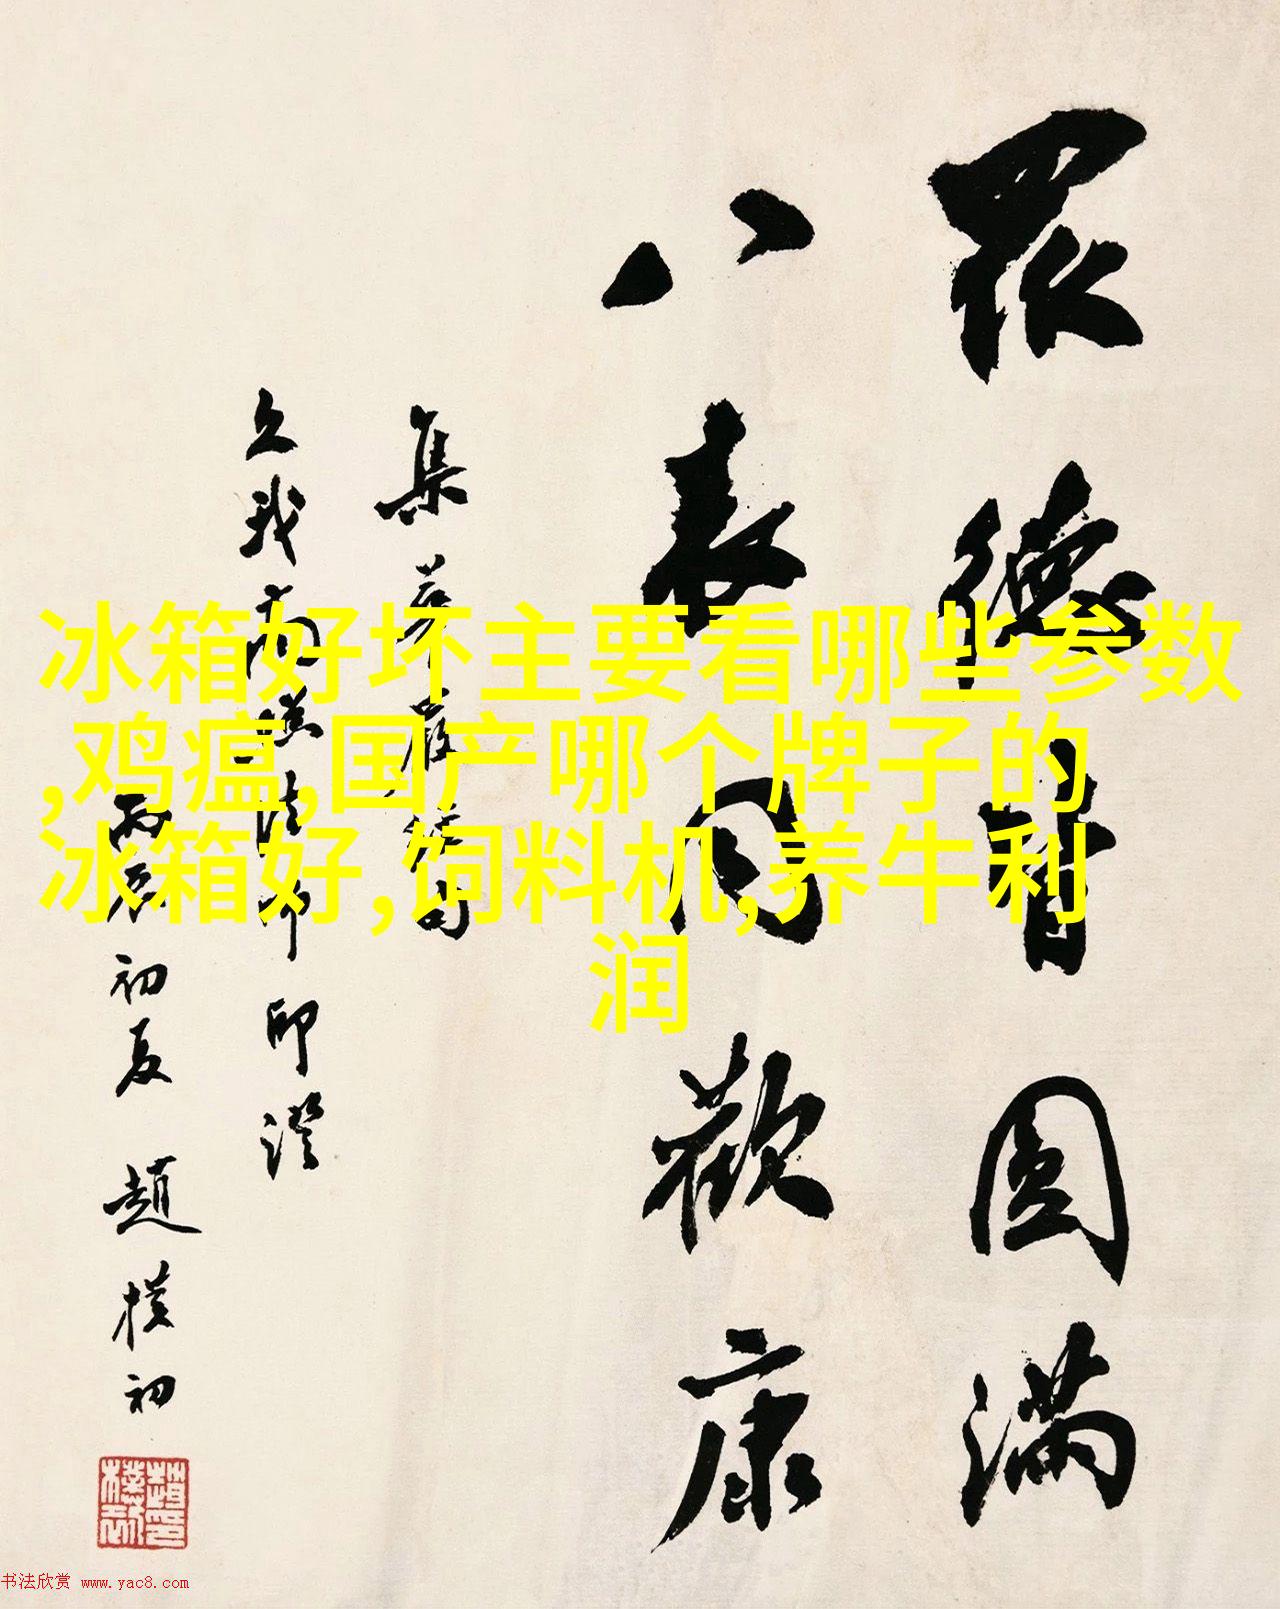 眾德皆圓滿
八表同歡康
集華嚴經句
久我高法印
丙辰初夏 趙樸初
冰箱好坏主要看哪些参数
,鸡瘟,国产哪个牌子的
冰箱好,饲料机,养牛利
润
书法欣赏 www.yac8.com